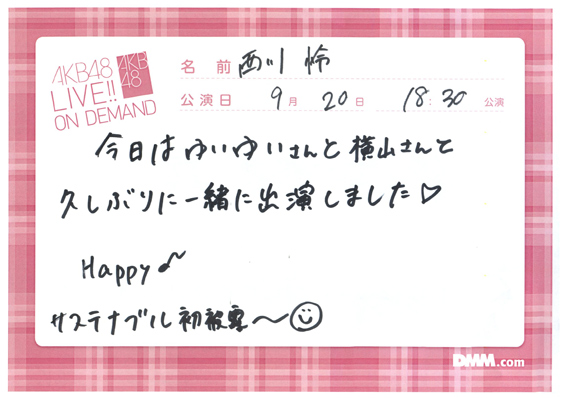 AKB48
LIVE!!
ON DEMAND
AKB
48
名 前 西川 怜
公演日 9月 20日 18:30 公演
今日は ゆいゆいさんと 横山さんと
久しぶりに一緒に出演しました♡
Happy♪
サステナブル 初披露〜☺
DMM.com